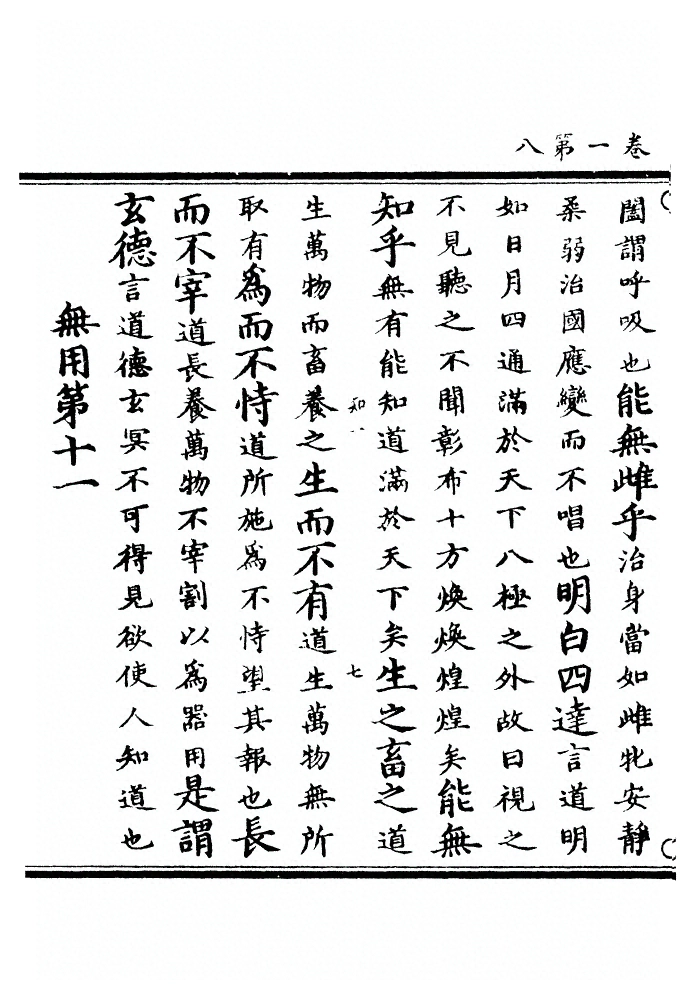 卷一第八
闔謂呼吸也能無雌乎治身當如雌牝安靜
柔弱治國應變而不唱也明白四達言道明
如日月四通滿於天下八極之外故曰視之
不見聽之不聞彰布十方煥煥煌煌矣能無
知乎無有能知道滿於天下矣生之畜之道
知八 七
生萬物而畜養之生而不有道生萬物無所
取有為而不恃道所施為不恃望其報也長
而不宰道長養萬物不宰割以為器用是謂
玄德言道德玄冥不可得見欲使人知道也
無用第十一